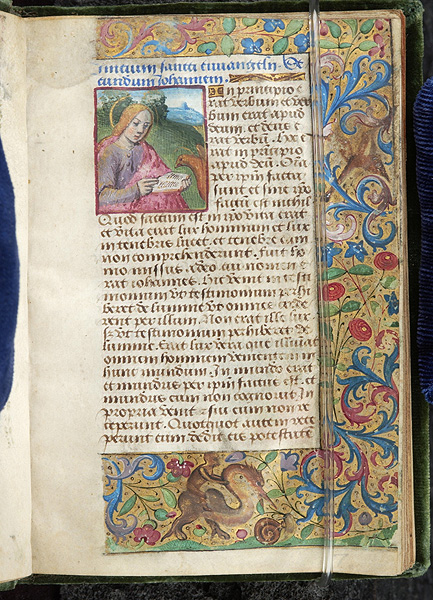 Inicium sancti euuangelii. Se
cundum Iohannem.
In principio e
rat verbum et ver
bum erat apud
deum, et deus e
rat verbū. hoc e
rat in principio
apud deū. Oīa
per ipm̄ facta
sunt et sine ipo
factū est nichil
Quod factum est in ipo vita erat
et vita erat lux hominum et lux
in tenebris lucet et tenebre eam
non comprehenderunt. Fuit ho
mo missus a deo cui nomen e
rat iohannes. hic venit in testi
monium vt testimonium perhi
beret de lumine vt omnes crede
rent per illum. Non erat ille lux
s; vt testimonium perhiberet de
lumine. Erat lux vera que illuminat
omnem hominem venientem in
hunc mundum. In mundo erat
et mundus per ipm̄ factus est. et
mundus eum non cognouit In
propria venit. sui eum non re
ceperunt. Quotquot autem rece
perunt eum dedit eis potestatē